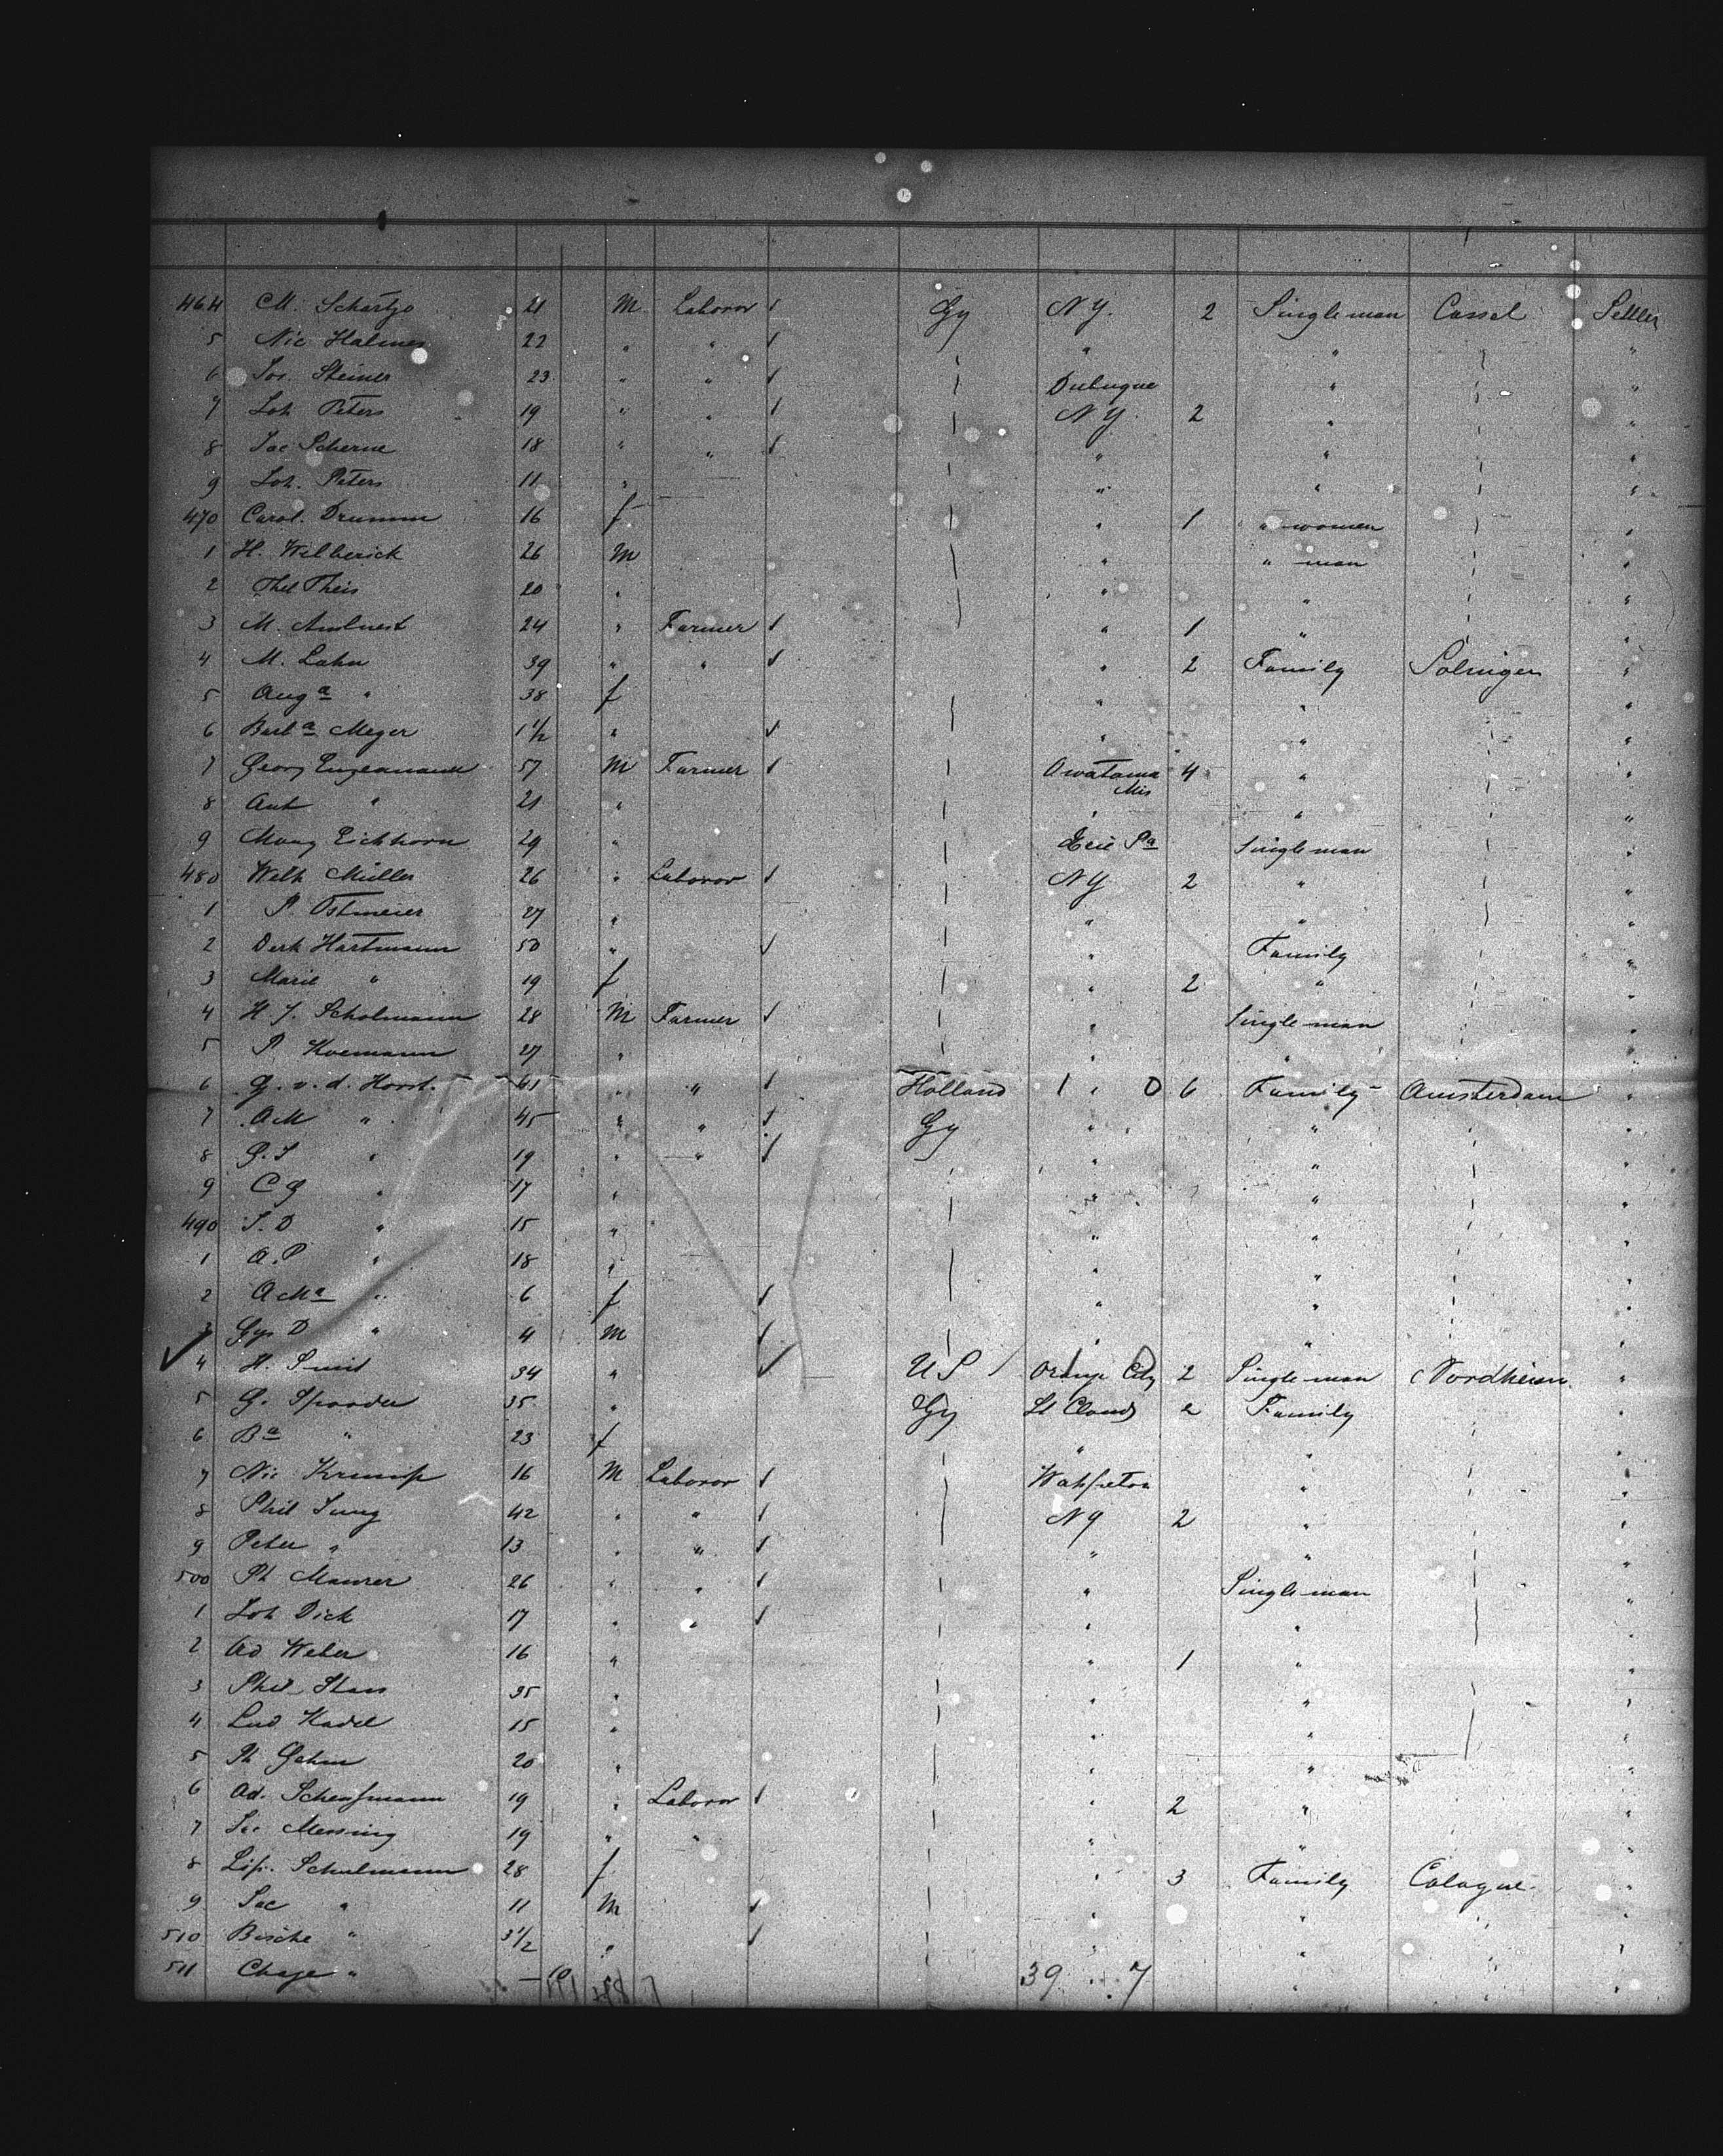 464 M. Schartze 21 M Laboror Gy NY. 2 Single man Cassel Settler
5 Nic Halmes 22 " " " " "
6 Jos. Steiner 23 " " Dubuque " "
7 Joh Peters 19 " " NY. 2 " "
8 Jac Scherne 18 " " " " "
9 Joh. Peters 11 " " " "
470 Carol. Drumm 16 f " 1 " women "
1 H. Welberick 26 M " " man "
2 Theis 20 " " " "
3 M. 24 " Farmer " 1 " "
4 M. Lahn 39 " " " 2 Family Solingen "
5 Aug a " 38 f " " "
6 Barb a Meyer 1 1/2 " " " "
7 Georg Engemann 57 M Farmer Owatama Mis 4 " "
8 Ant " 21 " " " "
9 Eichhorn 29 " Erie Pa Single man "
480 Wilh Müller 26 " Laboror NY 2 " "
1 P. Ostmeier 27 " " " "
2 Derk Hartmann 50 " " Family "
3 Marie " 19 f " 2 " "
4 H. J. Scholmann 28 M Farmer " Single man "
5 P Koemann 27 " " " "
6 G. v. d. Horst. 41 " " Holland " 6 Family Amsterdam "
7 AM " 45 " " Gy " " "
8 G. J " 19 " " " " "
9 C G " 17 " " " "
490 J. D " 15 " " " "
1 A. P " 18 " " " "
2 A Ma " 6 f " " "
3 Gys D " 4 M " " "
4 H. Smit 34 " US Orange City 2 Single man Nordheim "
5 G. Spooder 35 " Gy St Cloud 2 Family "
6 Ba " 23 f " " "
7 Nic Krump 16 M Laboror Wahpeton " "
8 Phil Jung 42 " " NY 2 " "
9 Peter " 13 " " " " "
500 Ph Maurer 26 " " " Single man "
1 Joh Dick 17 " " " " "
2 Ad Weber 16 " " 1 " "
3 Phil Stass 35 " " " "
4 Lud Kadel 15 " " " "
5 Ph Gehm 20 " " " "
6 Ad. Schensmann 19 " Laboror " 2 " "
7 Jac Messing 19 " " " " "
8 Lip. Schulmann 28 f " 3 Family Cologne "
9 Jac " 11 M " " "
510 Bische " 3 1/2 " " " "
511 Chaje " — 10 39 . . 7 " "